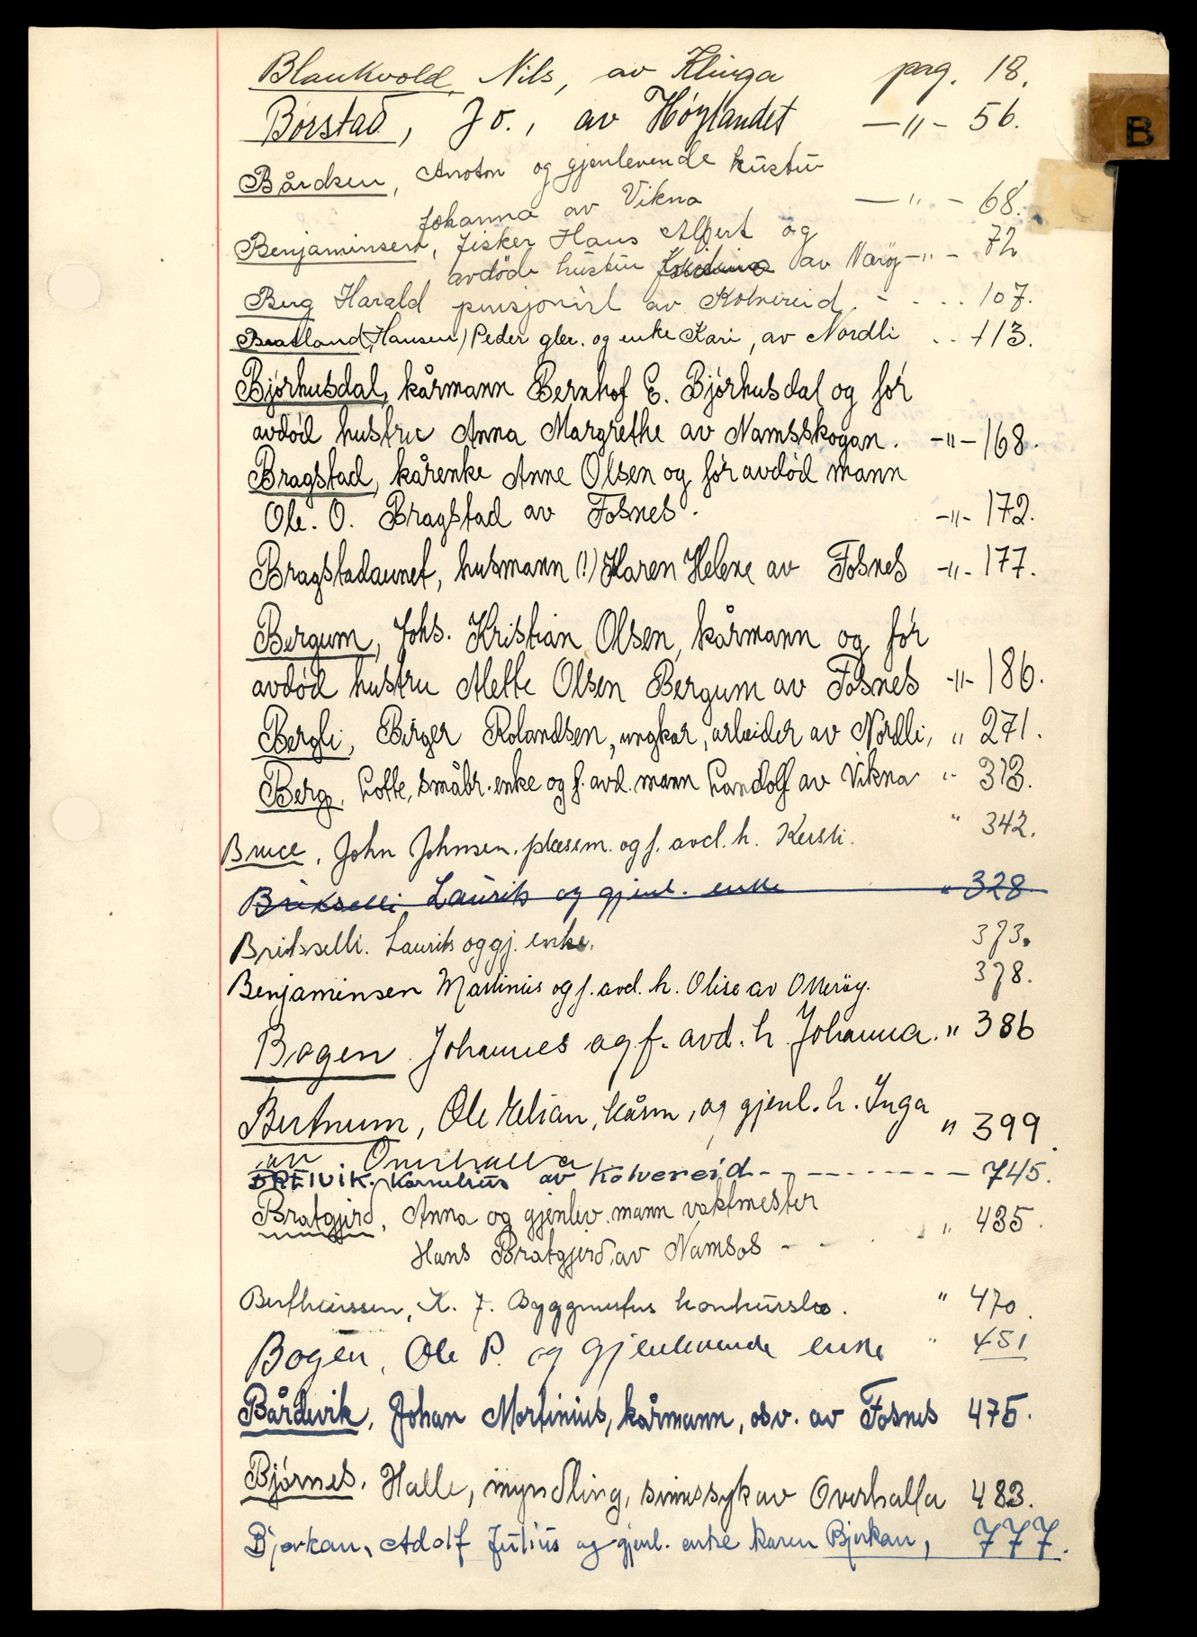 B
Blankvold, Nils, av Klinga pag. 18.
Børstad, Jo., av Høylandet —"— 56.
Bårdsen, Anton og gjenlevende hustru
Johanna av Vikna —"— 68.
Benjaminsen, fisker Hans Albert og 72
avdøde hustru av Nærøy —"—
Berg Harald pensjonist av Kolvereid. - . . . 107.
Bratland, Hansen) Peder gbr. og enke Kari, av Nordli . . 113.
Bjørhusdal, kårmann Bernhof E. Bjørhusdal og for
avdød hustru Anna Margrethe av Namsskogan. —"— 168.
Bragstad, kårenke Anne Olsen og for avdød mann
Ole. O. Bragstad av Fosnes. —"— 172.
Bragstadaunet, husmann (!) Karen Helene av Fosnes —"— 177.
Bergum, Johs. Kristian Olsen, kårmann og for
avdød hustru Mette Olsen Bergum av Fosnes —"— 186.
Bergli, Birger Rolandsen, ungkar, arbeider av Nordli, " 271.
Berg, Lotte, småbr. enke og f. avd. mann Landolf av Vikna " 313.
Bruce, John Johnsen, plassm. og f. avd. h. Kersti. " 342.
Brikselli Laurits og gjenl. enke " 328
Britsselli. Laurits og gj. enke. 373.
Benjaminsen Martinius og f. avd. h. Olise av Otterøy. 378.
Bogen Johannes og f. avd. h. Johanna. " 386
Bertnum, Ole Elian, kårm, og gjenl. h. Inga " 399
av Overhalla
BREIVIK. Kornelius av Kolvereid - - - - - - - 745.
Bratgjerd, Anna og gjenlev. mann vaktmester " 435.
Hans Bratgjerd, av Namsos -
Bertheussen, K. F. Byggmesters konkursbo. " 470.
Bogen, Ole P. og gjenlevende enke " 451
Bårdsvik, Johan Mortinius, kårmann, osv. av Fosnes 475.
Bjørnes, Halle, myndling, sinnssyk av Overhalla 483.
Bjørkan, Adolf Julius og gjenl. enke Karen Bjørkan, 777.